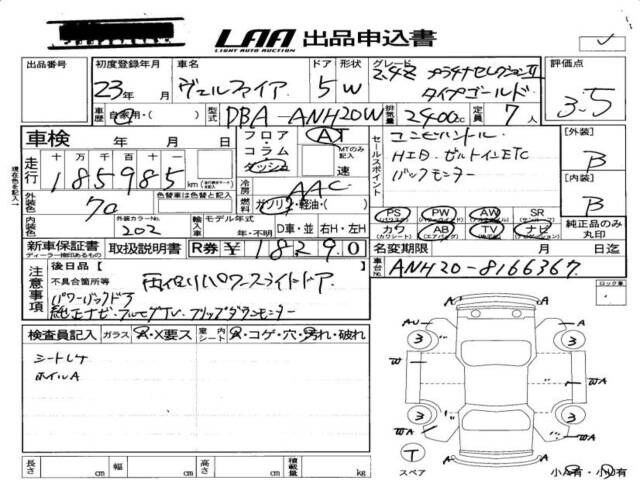 LAA 出品申込書
LIGHT AUTO AUCTION
出品番号 初度登録年月 車名 ドア 形状 グレード 評価点
23年 月 ヴェルファイア 5 W 2.4Z プラチナセレクションⅡ
タイプゴールド 3.5
車歴 自家用・( ) 型式 DBA-ANH20W 排気量 2400cc 定員 7人
車検 年 月 日
フロア・コラム・ダッシュ AT MTのみ記入 速
セールスポイント コンビハンドル
HID・ビルトインETC
バックモニター
[外装] B
[内装] B
走行 十万千百十 km
185985
冷房 AAC
燃料 ガソリン・軽油・( )
外装色 70 色替車は色替と記入
内装色 外装カラーNo. 202 輸入車 モデル年式 年・不明 D車・並 右H・左H
PS PW AW SR
カワ AB TV ナビ
純正品のみ丸印
新車保証書 取扱説明書 R券 ¥18290
ディーラー捺印あるもの
名変期限 月 日迄
車台No. ANH20-8166367
注意事項 後日品
不具合箇所等
両側パワースライドドア
パワーバックドア
純正ナビ・フルセグTV・フリップダウンモニター
ロック車
検査員記入 ガラス A・X要ス 室内 シート A・コゲ・穴・汚れ・破れ
シートS
ホイルA
AU A A
W WA
3 3 3 3
WA A WA
T
スペア 小A有・小U有
長さ cm 幅 cm 高さ cm 積載量 kg
現在色を記入